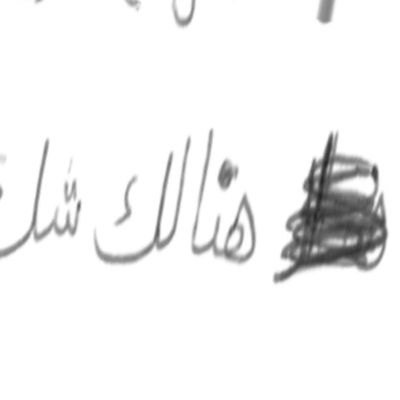 هنالك شك